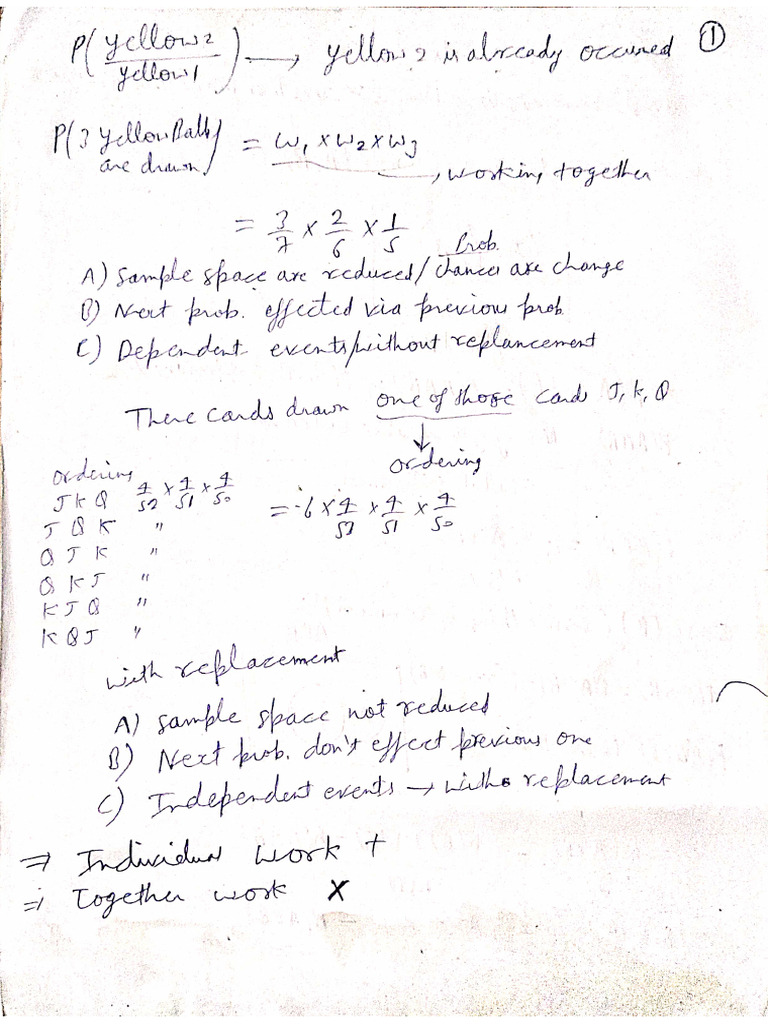 ①
P(yellow2/yellow1) → yellow 2 is already occured
P(3 yellow Balls are drawn) = W1 × W2 × W3
→ working together
= 3/7 × 2/6 × 1/5
Prob.
A) Sample space are reduced/chances are change
B) Next prob. effected via previous prob.
C) Dependent events/without replancement
There cards drawn one of those cards J, K, Q
↓
ordering
ordering
J K Q 4/52 × 4/51 × 4/50
= 6 × 4/52 × 4/51 × 4/50
J Q K "
Q J K "
Q K J "
K J Q "
K Q J "
with replacement
A) Sample space not reduced
B) Next prob. don't effect previous one
C) Independent events → with replacement
⇒ Individual work +
⇒ Together work ×